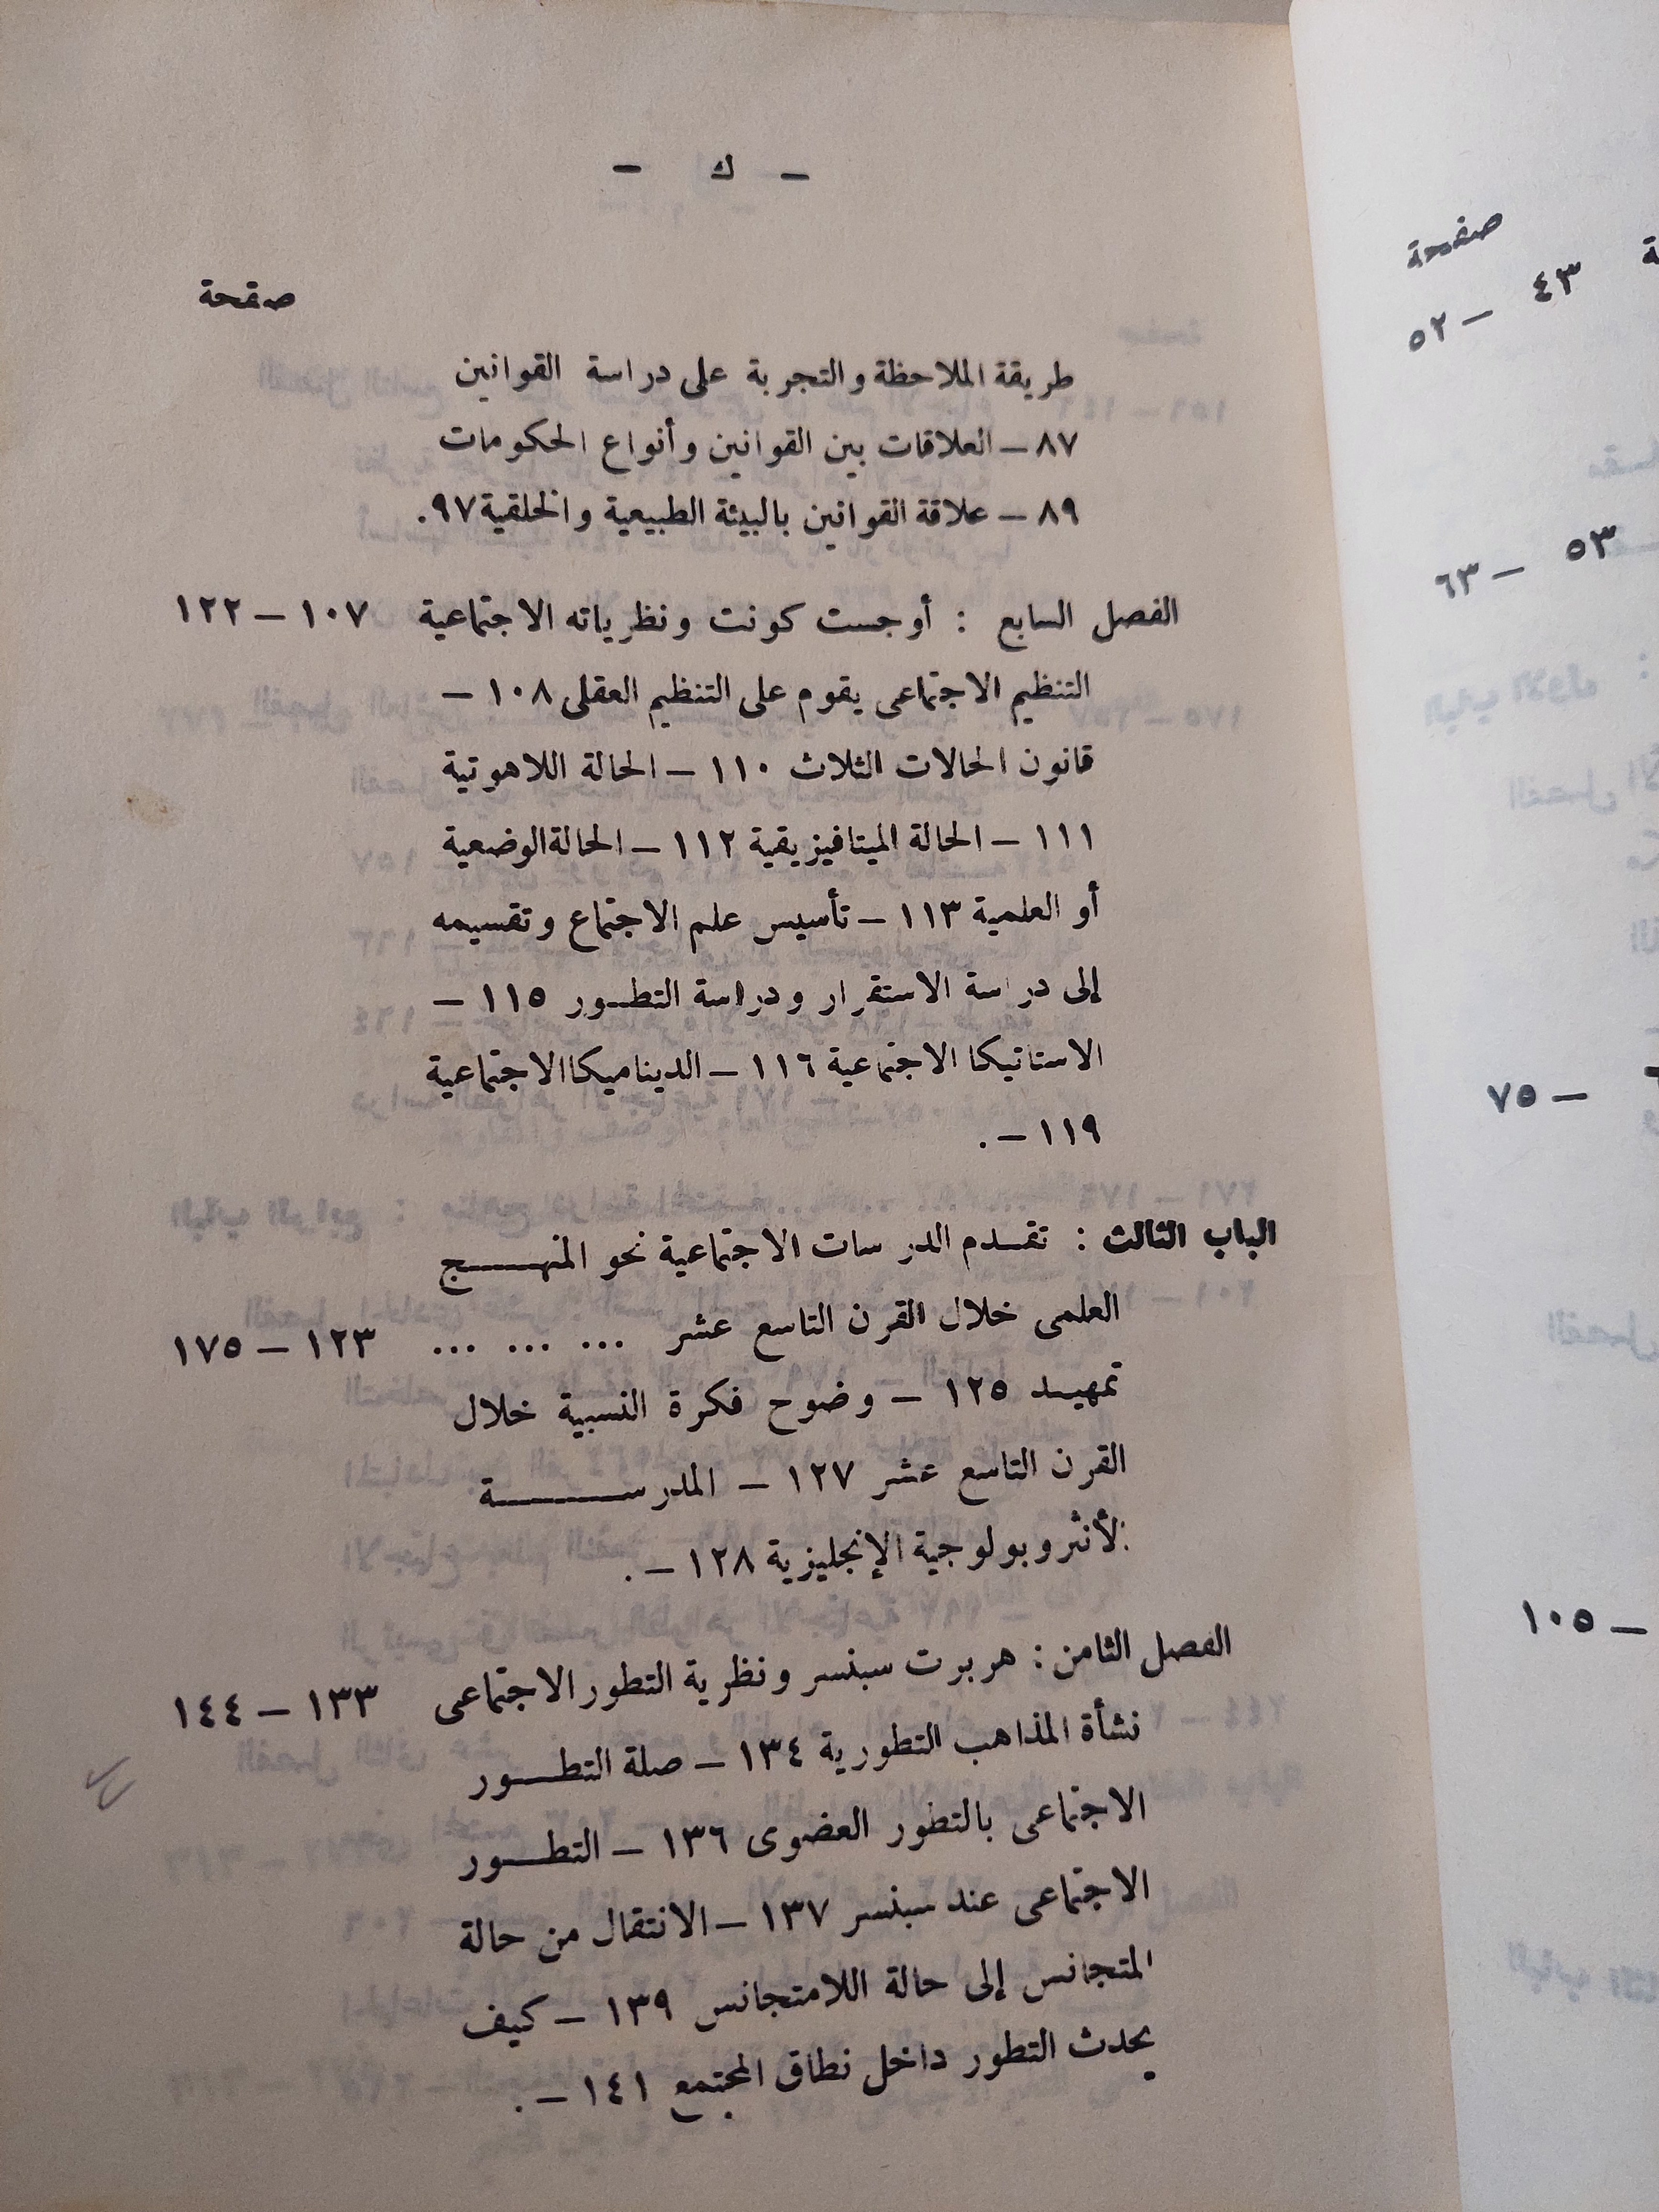 - ك -
صفحة
طريقة الملاحظة والتجربة على دراسة القوانين
٨٧ – العلاقات بين القوانين وأنواع الحكومات
٨٩ – علاقة القوانين بالبيئة الطبيعية والخلقية ٩٧.
الفصل السابع : أوجست كونت ونظرياته الاجتماعية ١٠٧ – ١٢٢
التنظيم الاجتماعى يقوم على التنظيم العقلى ١٠٨ –
قانون الحالات الثلاث ١١٠ – الحالة اللاهوتية
١١١ – الحالة الميتافيزيقية ١١٢ – الحالة الوضعية
أو العلمية ١١٣ – تأسيس علم الاجتماع وتقسيمه
إلى دراسة الاستقرار ودراسة التطور ١١٥ –
الاستاتيكا الاجتماعية ١١٦ – الديناميكا الاجتماعية
١١٩ – .
الباب الثالث : تقدم الدرسات الاجتماعية نحو المنهج
العلمى خلال القرن التاسع عشر ... ... ... ١٢٣ – ١٧٥
تمهيد ١٢٥ – وضوح فكرة النسبية خلال
القرن التاسع عشر ١٢٧ – المدرسة
الأنثروبولوجية الإنجليزية ١٢٨ – .
الفصل الثامن : هربرت سبنسر ونظرية التطور الاجتماعى ١٣٣ – ١٤٤
نشأة المذاهب التطورية ١٣٤ – صلة التطور
الاجتماعى بالتطور العضوى ١٣٦ – التطور
الاجتماعى عند سبنسر ١٣٧ – الانتقال من حالة
المتجانس إلى حالة اللامتجانس ١٣٩ – كيف
يحدث التطور داخل نطاق المجتمع ١٤١ – .
صفحة
٤٣ – ٥٢
٥٣ – ٦٣
– ٧٥
– ١٠٥